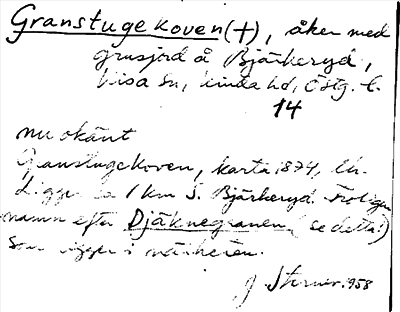 Granstugekoven(+), åker med
grusjord å Bjärkeryd,
Kisa sn, Kinda hd, Östg. l.
14
nu okänt
Granstugekoven, karta 1874, Ch.
Ligger ca 1 km S. Bjärkeryd. Troligen
namn efter Djäknegranen (se detta!)
som ligger i närheten.
J. Sterner 1958